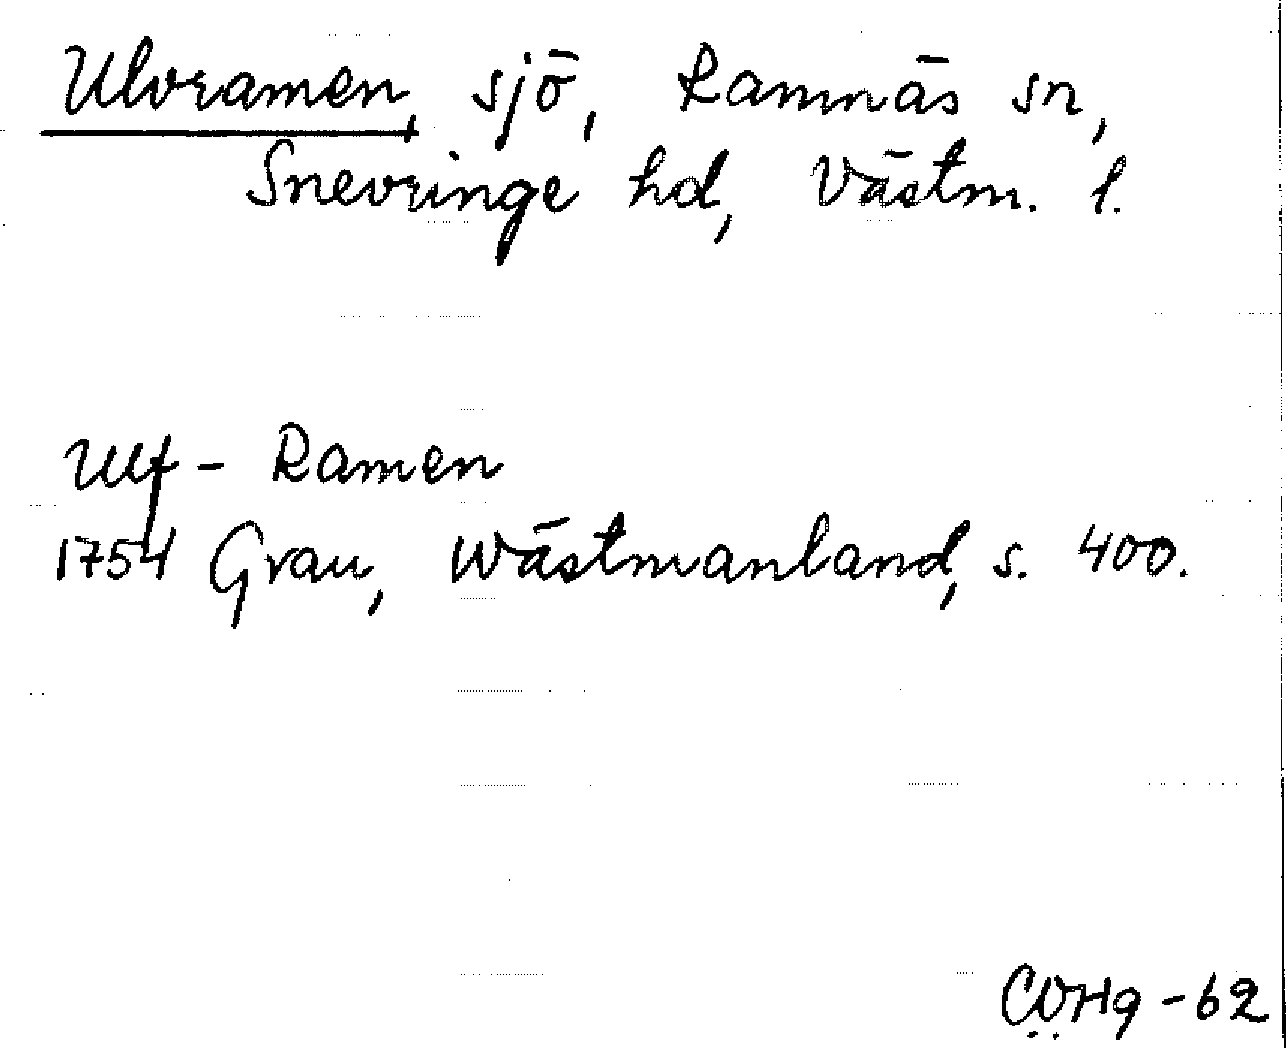 Ulvramen, sjö, Ramnäs sn,
Snevringe hd, Västm. l.
Ulf-Ramen
1754 Grau, Wästmanland, s. 400.
-62